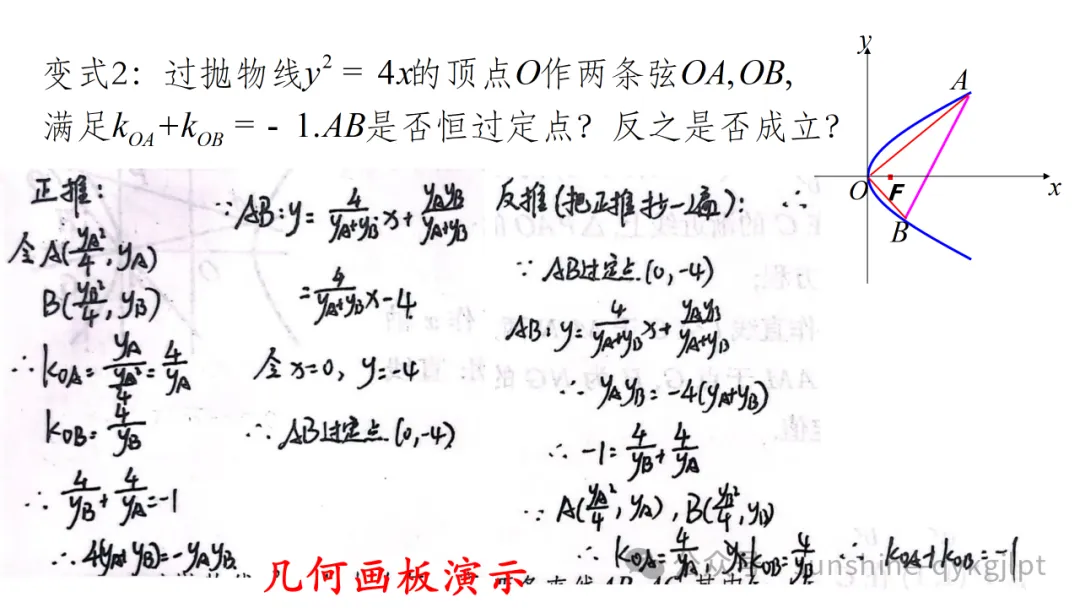 变式2：过抛物线y² = 4x的顶点O作两条弦OA,OB,
满足k_OA+k_OB = - 1.AB是否恒过定点？反之是否成立？
正推：
令A(y_A²/4, y_A)
B(y_B²/4, y_B)
∴ k_OA = y_A/(y_A²/4) = 4/y_A
k_OB = 4/y_B
∴ 4/y_B + 4/y_A = -1
∴ 4(y_A+y_B) = -y_A y_B
∵ AB: y = 4/(y_A+y_B) x + y_A y_B/(y_A+y_B)
= 4/(y_A+y_B) x - 4
令x=0, y=-4
∴ AB过定点(0,-4)
反推(把正推抄一遍)：
∵ AB过定点(0,-4)
AB: y = 4/(y_A+y_B) x + y_A y_B/(y_A+y_B)
∴ y_A y_B = -4(y_A+y_B)
∴ -1 = 4/y_B + 4/y_A
∵ A(y_A²/4, y_A), B(y_B²/4, y_B)
∴ k_OA = 4/y_A, k_OB = 4/y_B ∴ k_OA+k_OB = -1
几何画板演示
y
A
O
F
x
B
sunshine-qykgjlpt